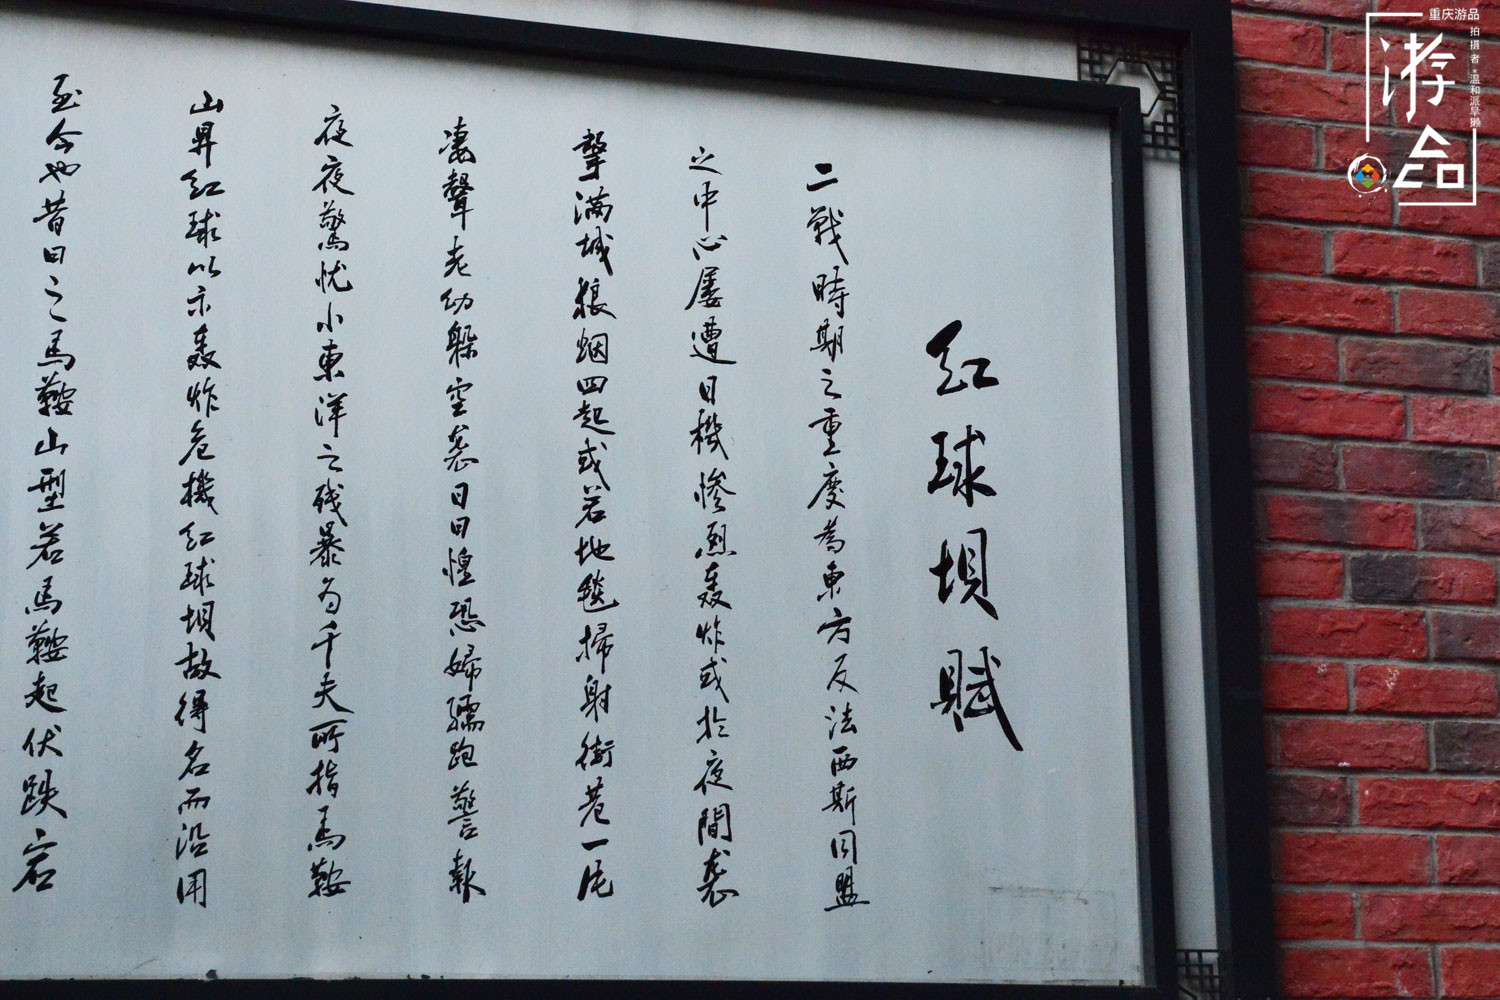 红球坝赋
二戰時期之重慶為東方反法西斯同盟
之中心屡遭日機惨烈轰炸或於夜間袭
擊满城狼烟四起或若地毯掃射街巷一片
凄聲老幼躲空袭日日惶恐婦孺跑警報
夜夜驚忧小東洋之残暴为千夫所指馬鞍
山昇红球以示轰炸危機红球坝故得名而沿用
至今也昔日之馬鞍山型若馬鞍起伏跌宕
重庆游品
拍摄者·温和派旱獭
游品